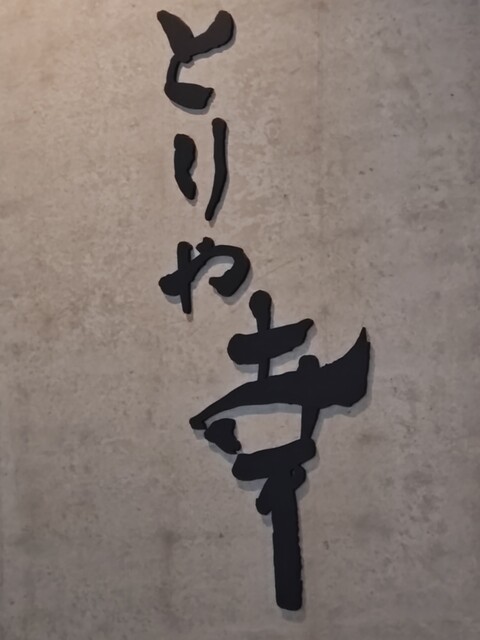 とりや幸